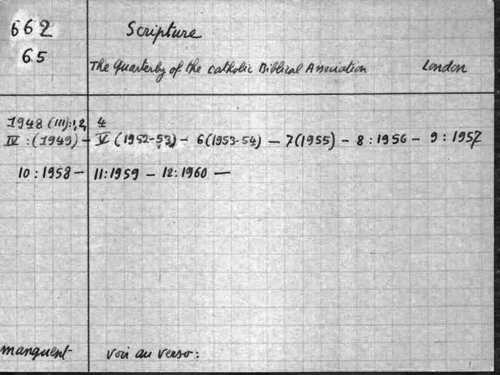 662 Scripture
65
The Quarterly of the Catholic Biblical Association London
1948 (III):1,2, 4
IV : (1949) – V (1952-53) – 6 (1953-54) – 7 (1955) – 8 : 1956 – 9 : 1957
10 : 1958 – 11 : 1959 – 12 : 1960 –
manquent voir au verso :